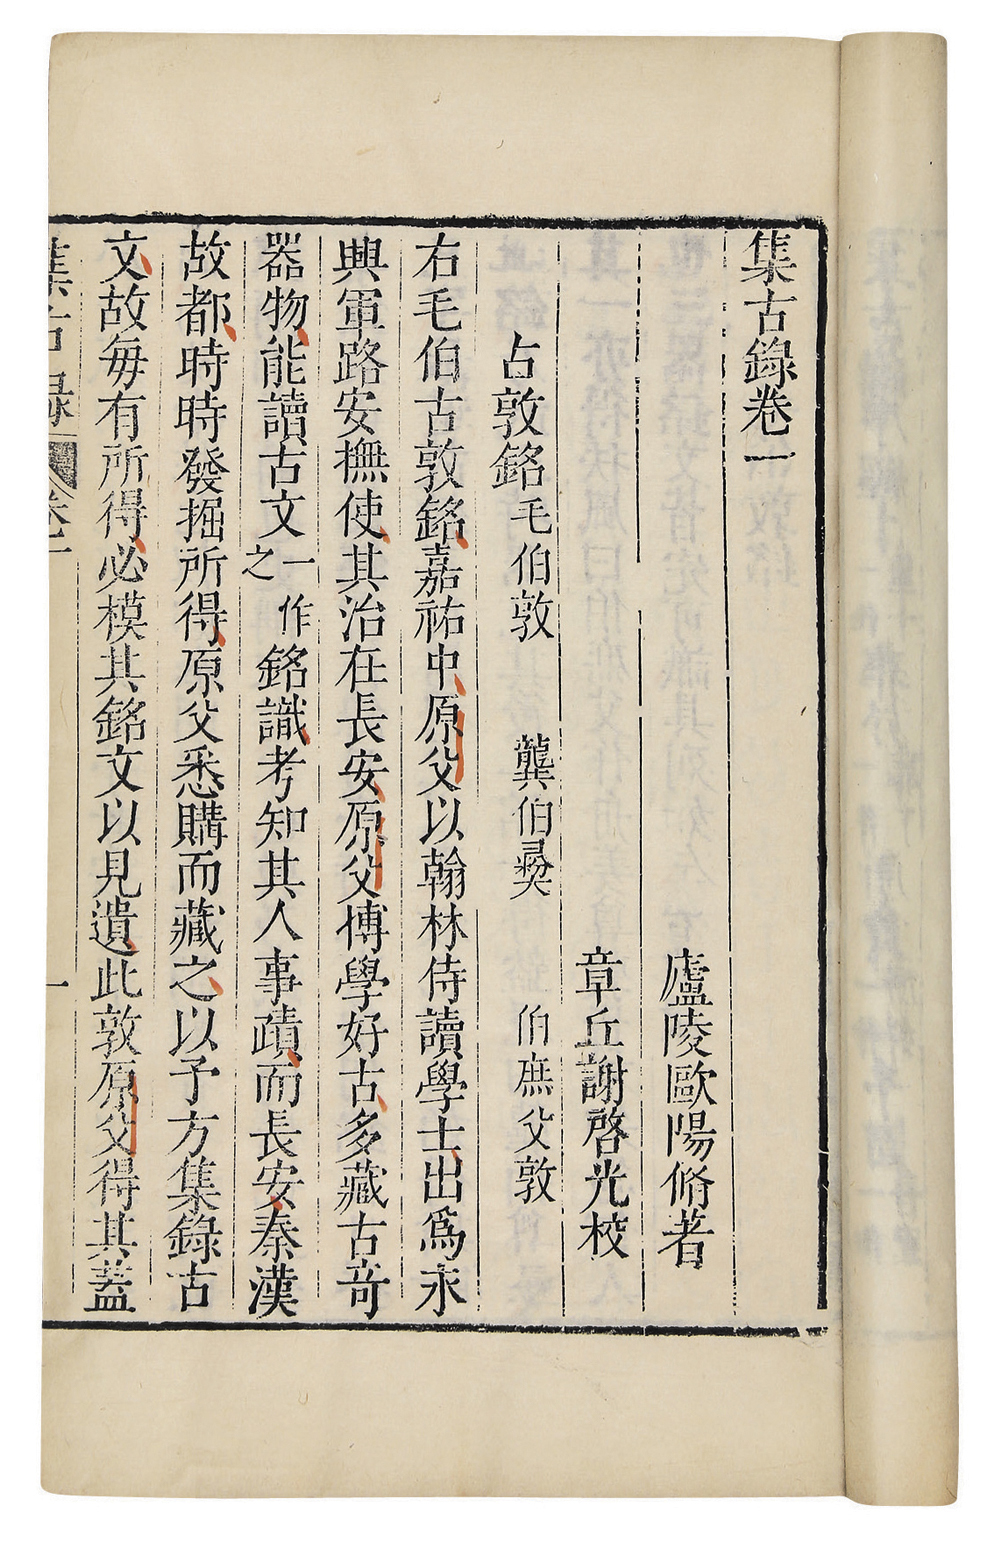 集古錄卷一
廬陵歐陽脩著
章丘謝啓光校
古敦銘 毛伯敦 龔伯彝 伯庶父敦
右毛伯古敦銘嘉祐中原父以翰林侍讀學士出爲永
興軍路安撫使其治在長安原父博學好古多藏古奇
器物能讀古文一作之銘識考知其人事蹟而長安秦漢
故都時時發掘所得原父悉購而藏之以予方集錄古
文故每有所得必模其銘文以見遺此敦原父得其蓋
集古錄 卷一 一